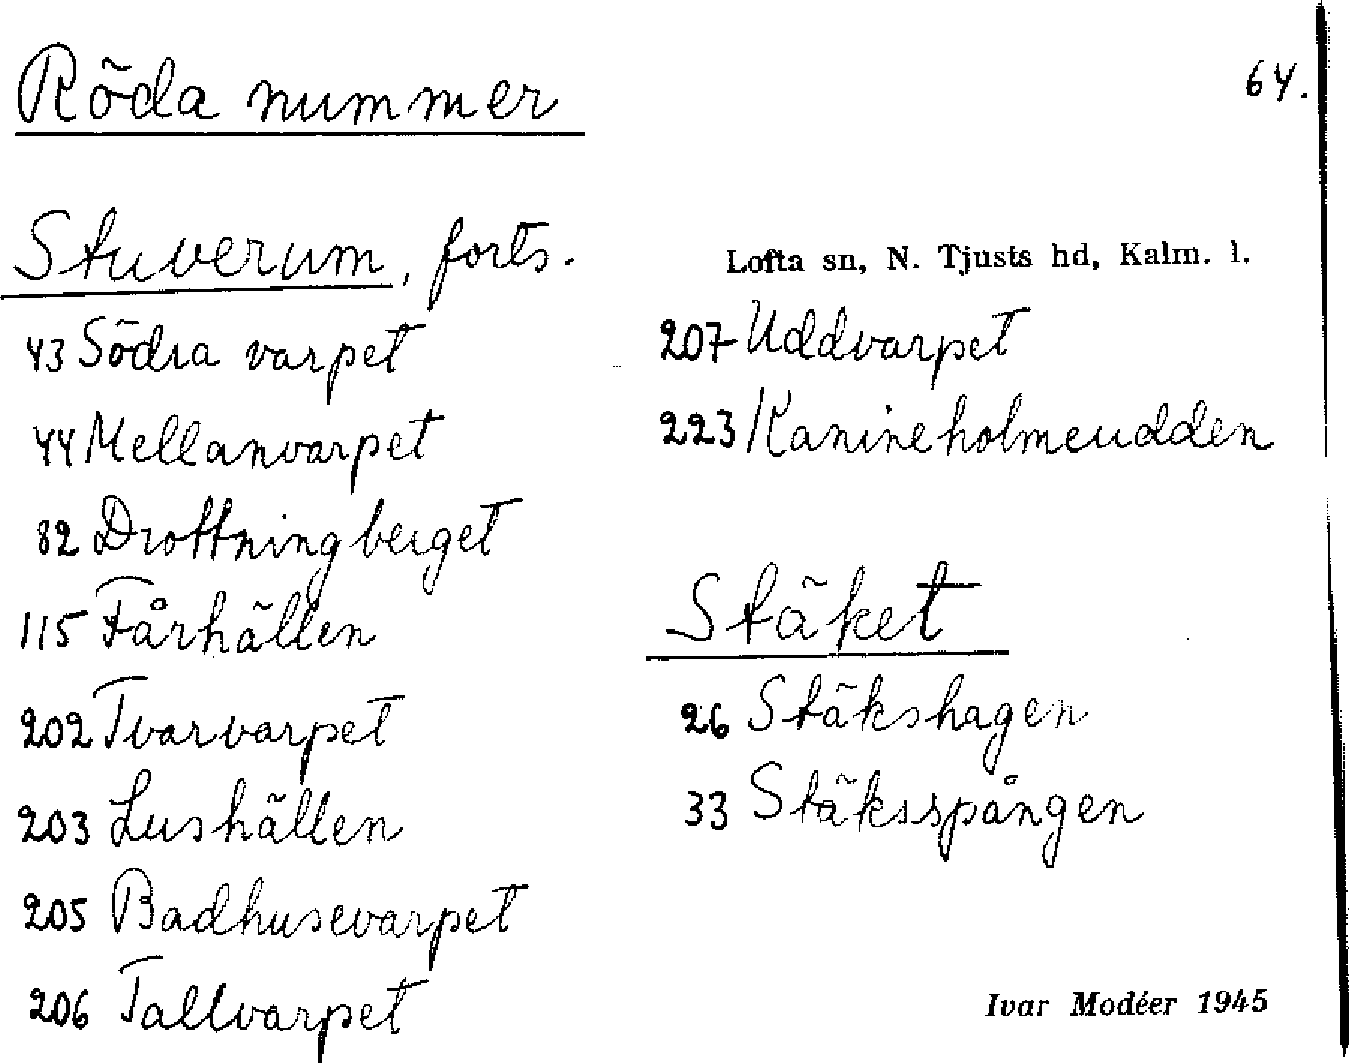 Röda nummer
64.
Stuverum, forts.
Lofta sn, N. Tjusts hd, Kalm. l.
43 Södra varpet
44 Mellanvarpet
82 Drottningberget
115 Fårhällen
202 Tvarvarpet
203 Lushällen
205 Badhusevarpet
206 Tallvarpet
207 Uddvarpet
223 Kanineholmeudden
Stäket
26 Stäkshagen
33 Stäksspången
Ivar Modéer 1945